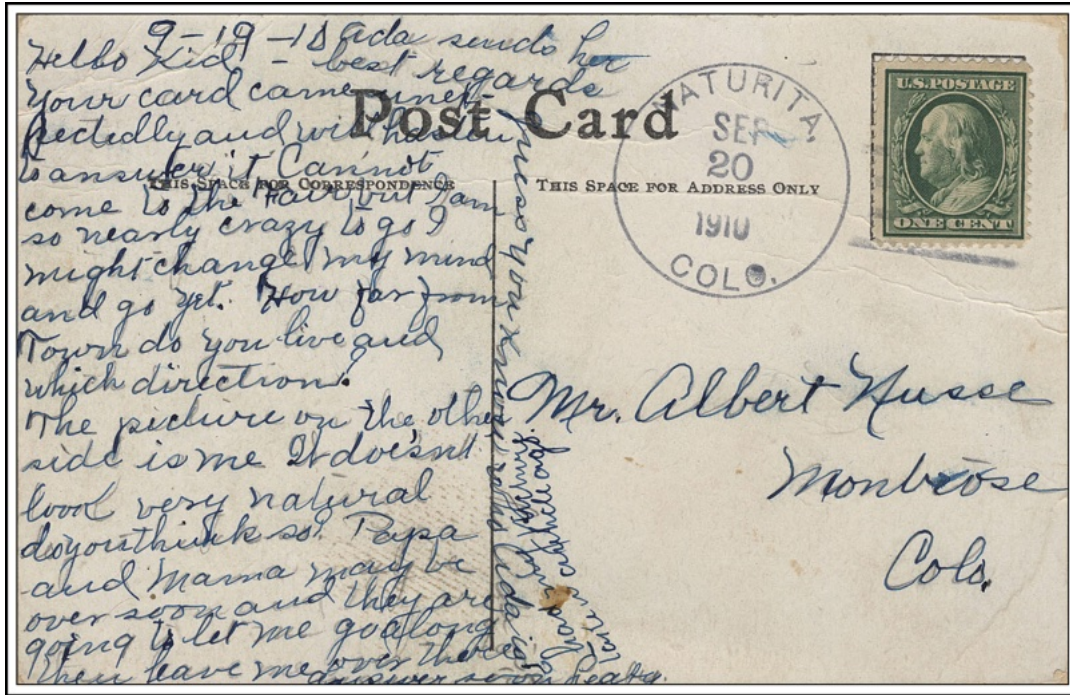 9-19-10 Ada sends her
best regards
Hello Kid -
Your card came unex-
pectedly and will hasten
to answer it Cannot
come to the Fair but I am
so nearly crazy to go I
might change my mind
and go yet. How far from
Town do you live and
which direction?
The picture on the other
side is me It doesn't
look very natural
do you think so. Papa
and Mama may be
over soon and they are
going to let me go along
then leave me over there
answer soon
guess you know who Ada is?
Post Card
THIS SPACE FOR CORRESPONDENCE
THIS SPACE FOR ADDRESS ONLY
NATURITA.
SEP
20
1910
COLO.
U.S. POSTAGE
ONE CENT
Mr. Albert Husse
Montrose
Colo.